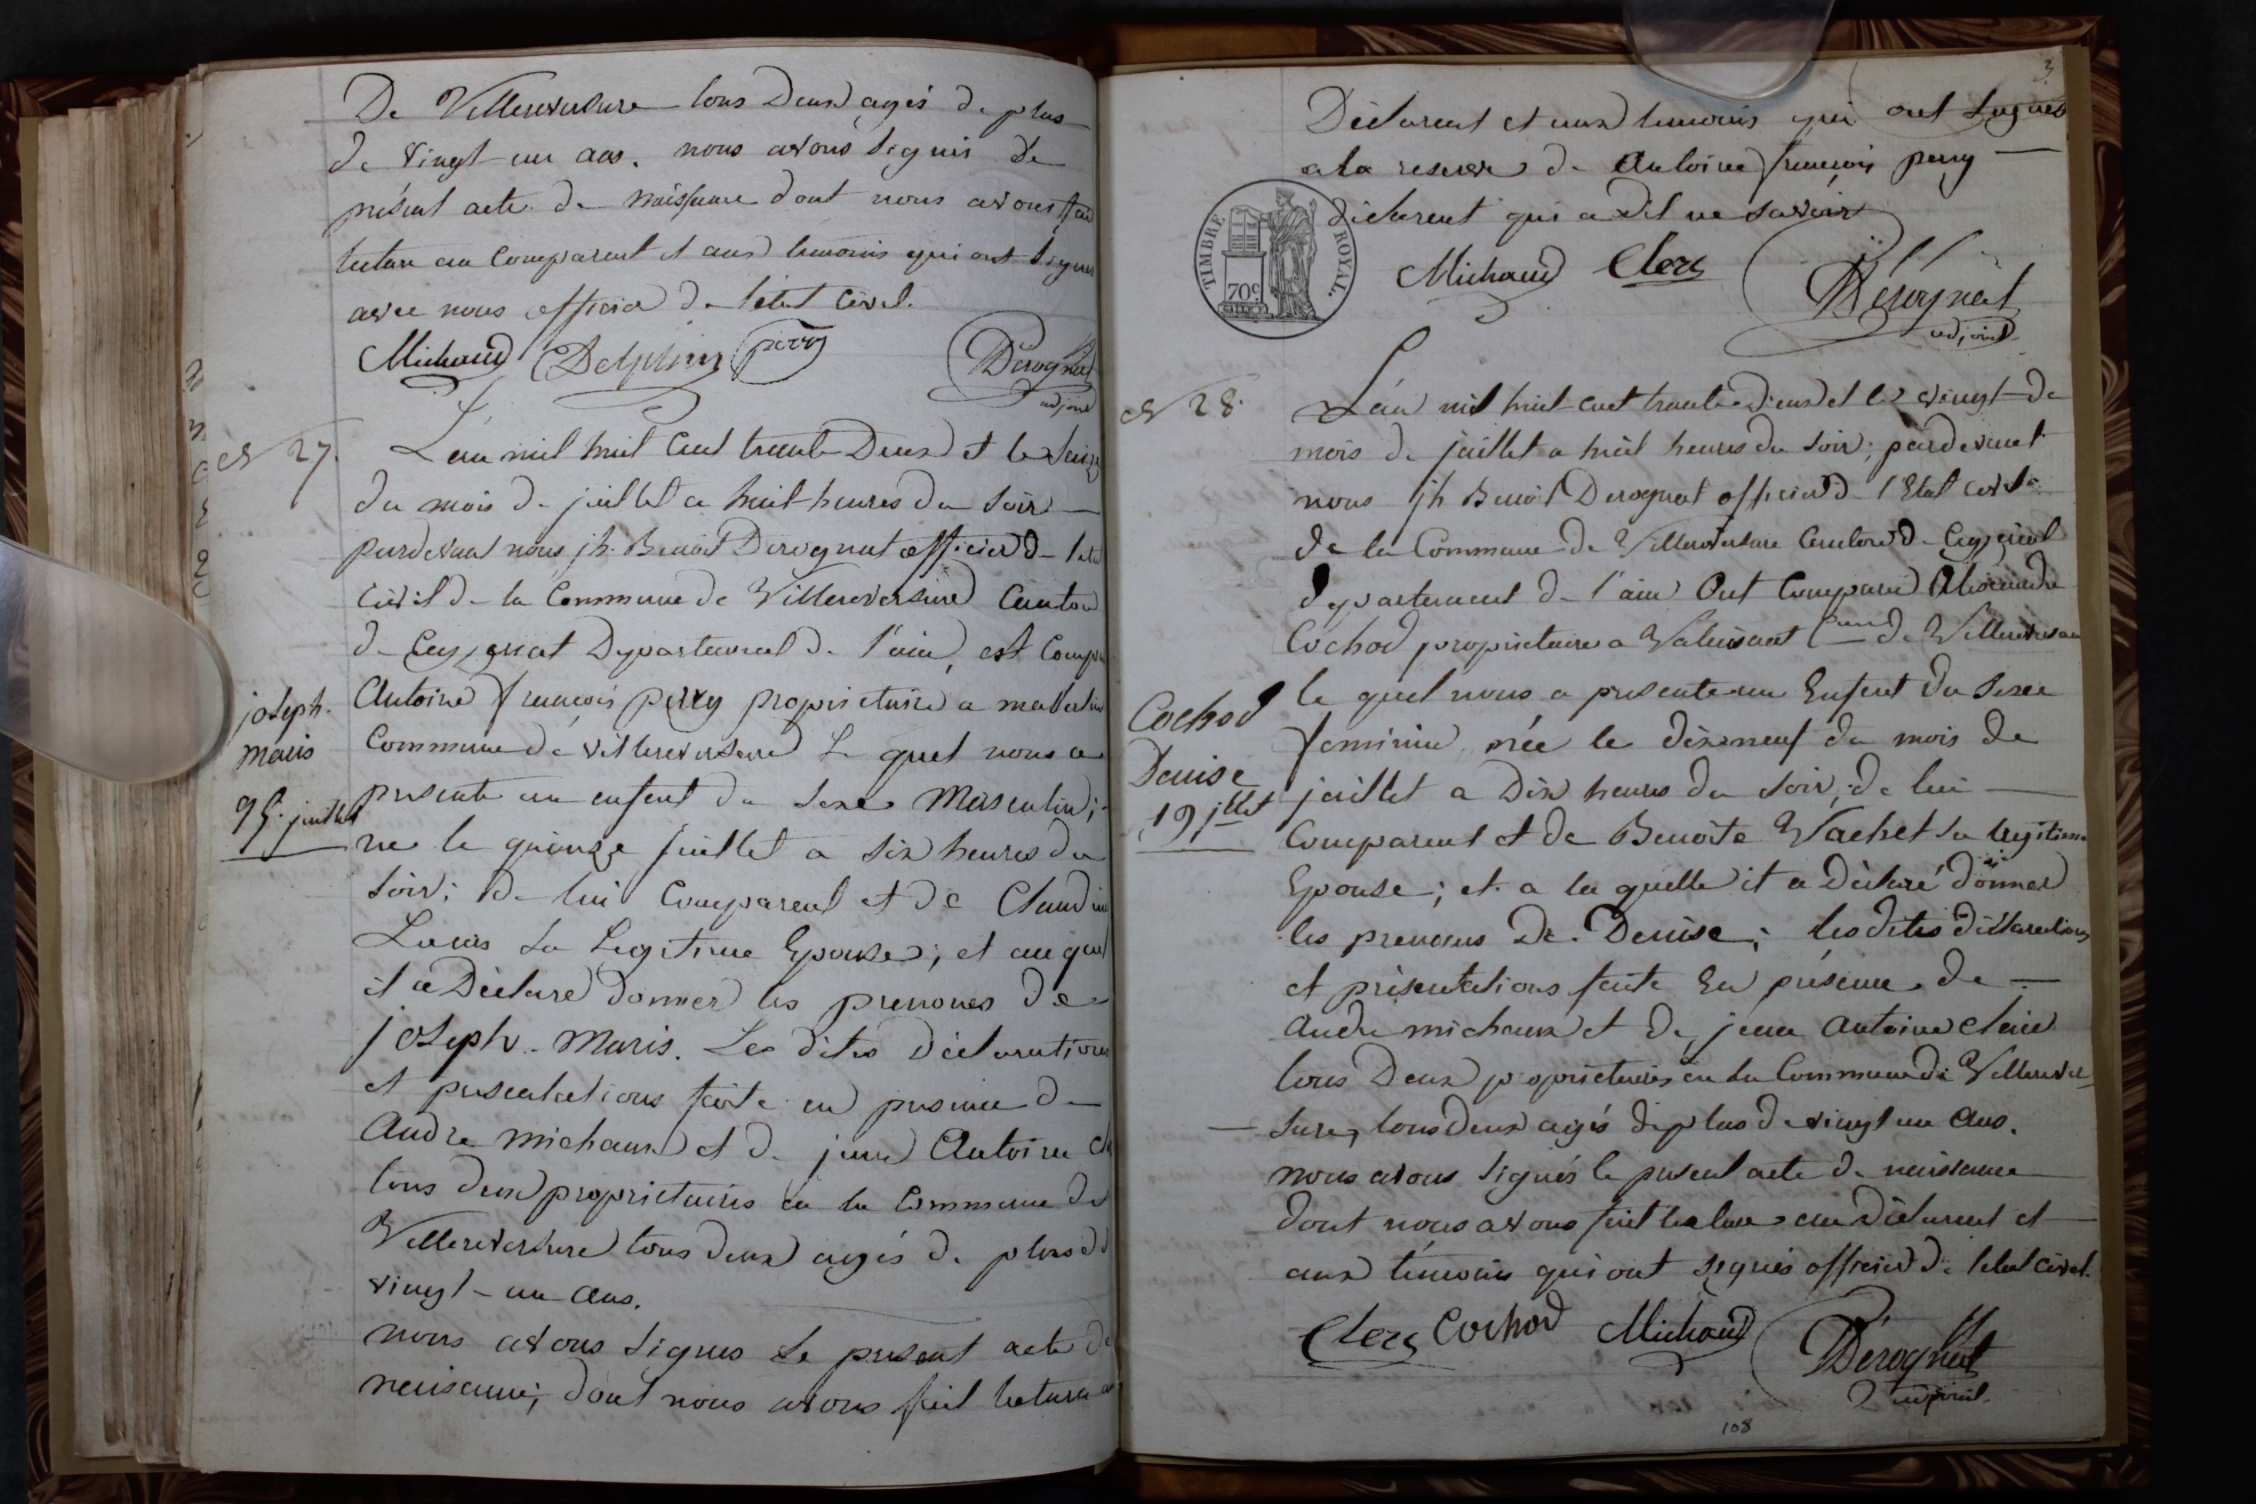 De Villereversure tous Deux agés de plus
de vingt-un ans. nous avons signés le
présent acte de naissance dont nous avons fai
lecture au Comparent et aux temoins qui ont signés
avec nous officier de l'état Civil.
Michaud Delphin perry Dérognat
adjoint
N 27. L'an mil huit Cent trente Deux et le seize
du mois de juillet a huit heures du soir
pardevant nous jh. Benoit Derognat officier de l'etat
Civil de la Commune de Villereversure Canton
de Ceyzeriat Departement de l'ain, est Compa
Antoine françois perry propriétaire a
Commune de villereversure Le quel nous a
presenté un enfent du sexe Masculin;
né le quinze juillet a six heures du
soir; de lui Comparent et de Claudine
Lucas sa Legitime Epouse; et au quel
il a Déclaré donner les prenoms De
joseph-Maris. Les dites Déclarations
et presentations faite en presence de
Andre michaux et de jean Antoine
tous deux proprietaires en la Commune de
Villereversure tous deux agés de plus de
vingt-un ans.
nous avons signés le present acte de
naissance; dont nous avons fait lecture au
joseph.
maris
15. juillet
3
Déclarent et aux temoins qui ont signés
a la reserve de Antoine françois perry
déclarent qui a dit ne savoir
TIMBRE ROYAL.
70c
Michaud Clerc Dérognat
adjoint
N 28. L'an mil huit cent trente-Deux et le vingt de
mois de juillet a huit heures du soir; pardevant
nous jh Benoit Derognat officier de l'Etat civil
de la Commune de Villereversure Canton de Ceyzeriat
departement de l'ain Ont Comparu Alexandre
Cochod propriétaire a Commune de Villereversure
le quel nous a presenté un Enfent du sexe
feminin, née le dixneuf du mois de
juillet a Dix heures du soir, de lui
Comparent et de Benoite Vachet sa legitime
Epouse; et a la quelle il a Déclaré donner
les prenoms De Denise; les dites déclarations
et présentations faite En présence de
andre michaux et de jean Antoine clerc
tous Deux propriétaires en la Commune de Villerever-
sure, tous deux agés de plus de vingt un ans.
nous avons signés le present acte de naissance
dont nous avons fait lecture au déclarent et
aux témoins qui ont signés officier de l'etat civil.
Clerc Cochod Michaud Dérognat
adjoint.
Cochod
Denise
19 jllet
108